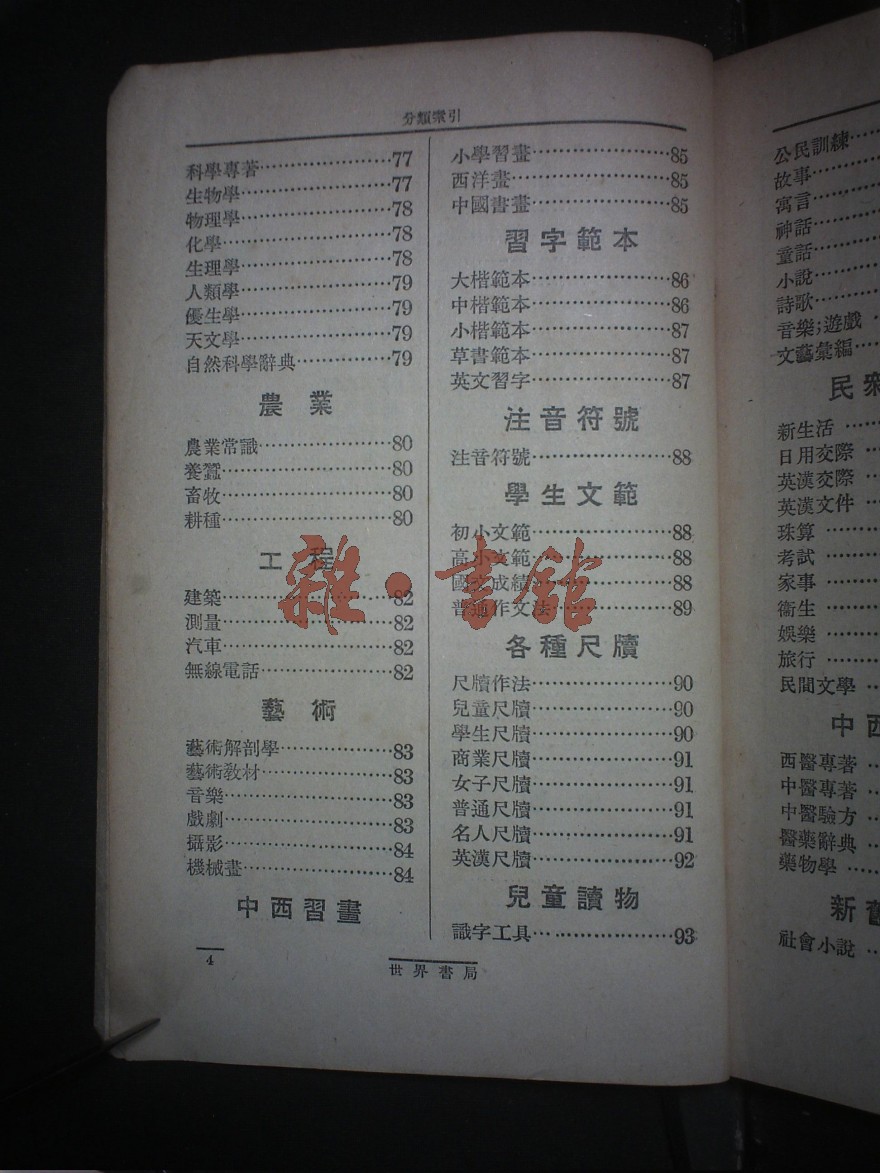 分類索引
科學專著……………………77
生物學……………………77
物理學……………………78
化學……………………78
生理學……………………78
人類學……………………79
優生學……………………79
天文學……………………79
自然科學辭典……………………79
農業
農業常識……………………80
養蠶……………………80
畜牧……………………80
耕種……………………80
工程
建築……………………82
測量……………………82
汽車……………………82
無線電話……………………82
藝術
藝術解剖學……………………83
藝術教材……………………83
音樂……………………83
戲劇……………………83
攝影……………………84
機械畫……………………84
中西習畫
小學習畫……………………85
西洋畫……………………85
中國書畫……………………85
習字範本
大楷範本……………………86
中楷範本……………………86
小楷範本……………………87
草書範本……………………87
英文習字……………………87
注音符號
注音符號……………………88
學生文範
初小文範……………………88
高小文範……………………88
國文成績……………………88
普通作文法……………………89
各種尺牘
尺牘作法……………………90
兒童尺牘……………………90
學生尺牘……………………90
商業尺牘……………………91
女子尺牘……………………91
普通尺牘……………………91
名人尺牘……………………91
英漢尺牘……………………92
兒童讀物
識字工具……………………93
4
世界書局
雜·書館
公民訓練……
故事……
寓言……
神話……
童話……
小說……
詩歌……
音樂;遊戲……
文藝彙編……
民眾
新生活……
日用交際……
英漢交際……
英漢文件……
珠算……
考試……
家事……
衞生……
娛樂……
旅行……
民間文學……
中西
西醫專著……
中醫專著……
中醫驗方……
醫藥辭典……
藥物學……
新舊
社會小說……